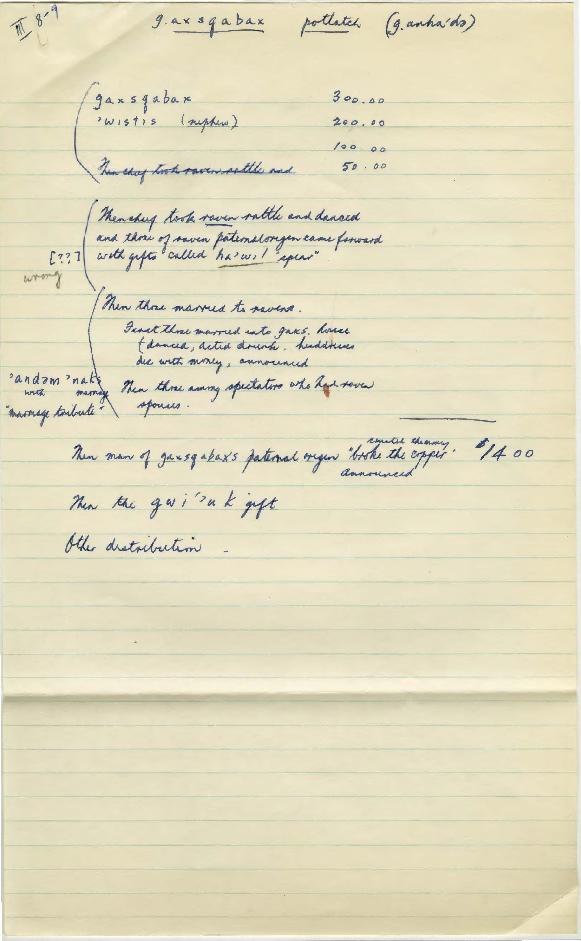 III 8-9
g.axsgabax potlatch (g.anha'da)
gaxsgabax 300.00
'wistis (nephew) 200.00
100 00
Then chief took raven rattle and 50.00
Then chief took raven rattle and danced
and those of raven paternal origen came forward
[??] with gifts called ha'wi! "spear"
wrong
Then those married to ravens.
First those married into gaxs. house
(danced, acted drunk. headdress
dec with money, announced
'andəm 'naks
with marriage
"marriage tribute"
Then those among spectators who had raven
spouses.
Then man of gaxsgabax's paternal origin "broke the copper" $1400
announced
Then the gwi'ɔuk gift
Other distribution -